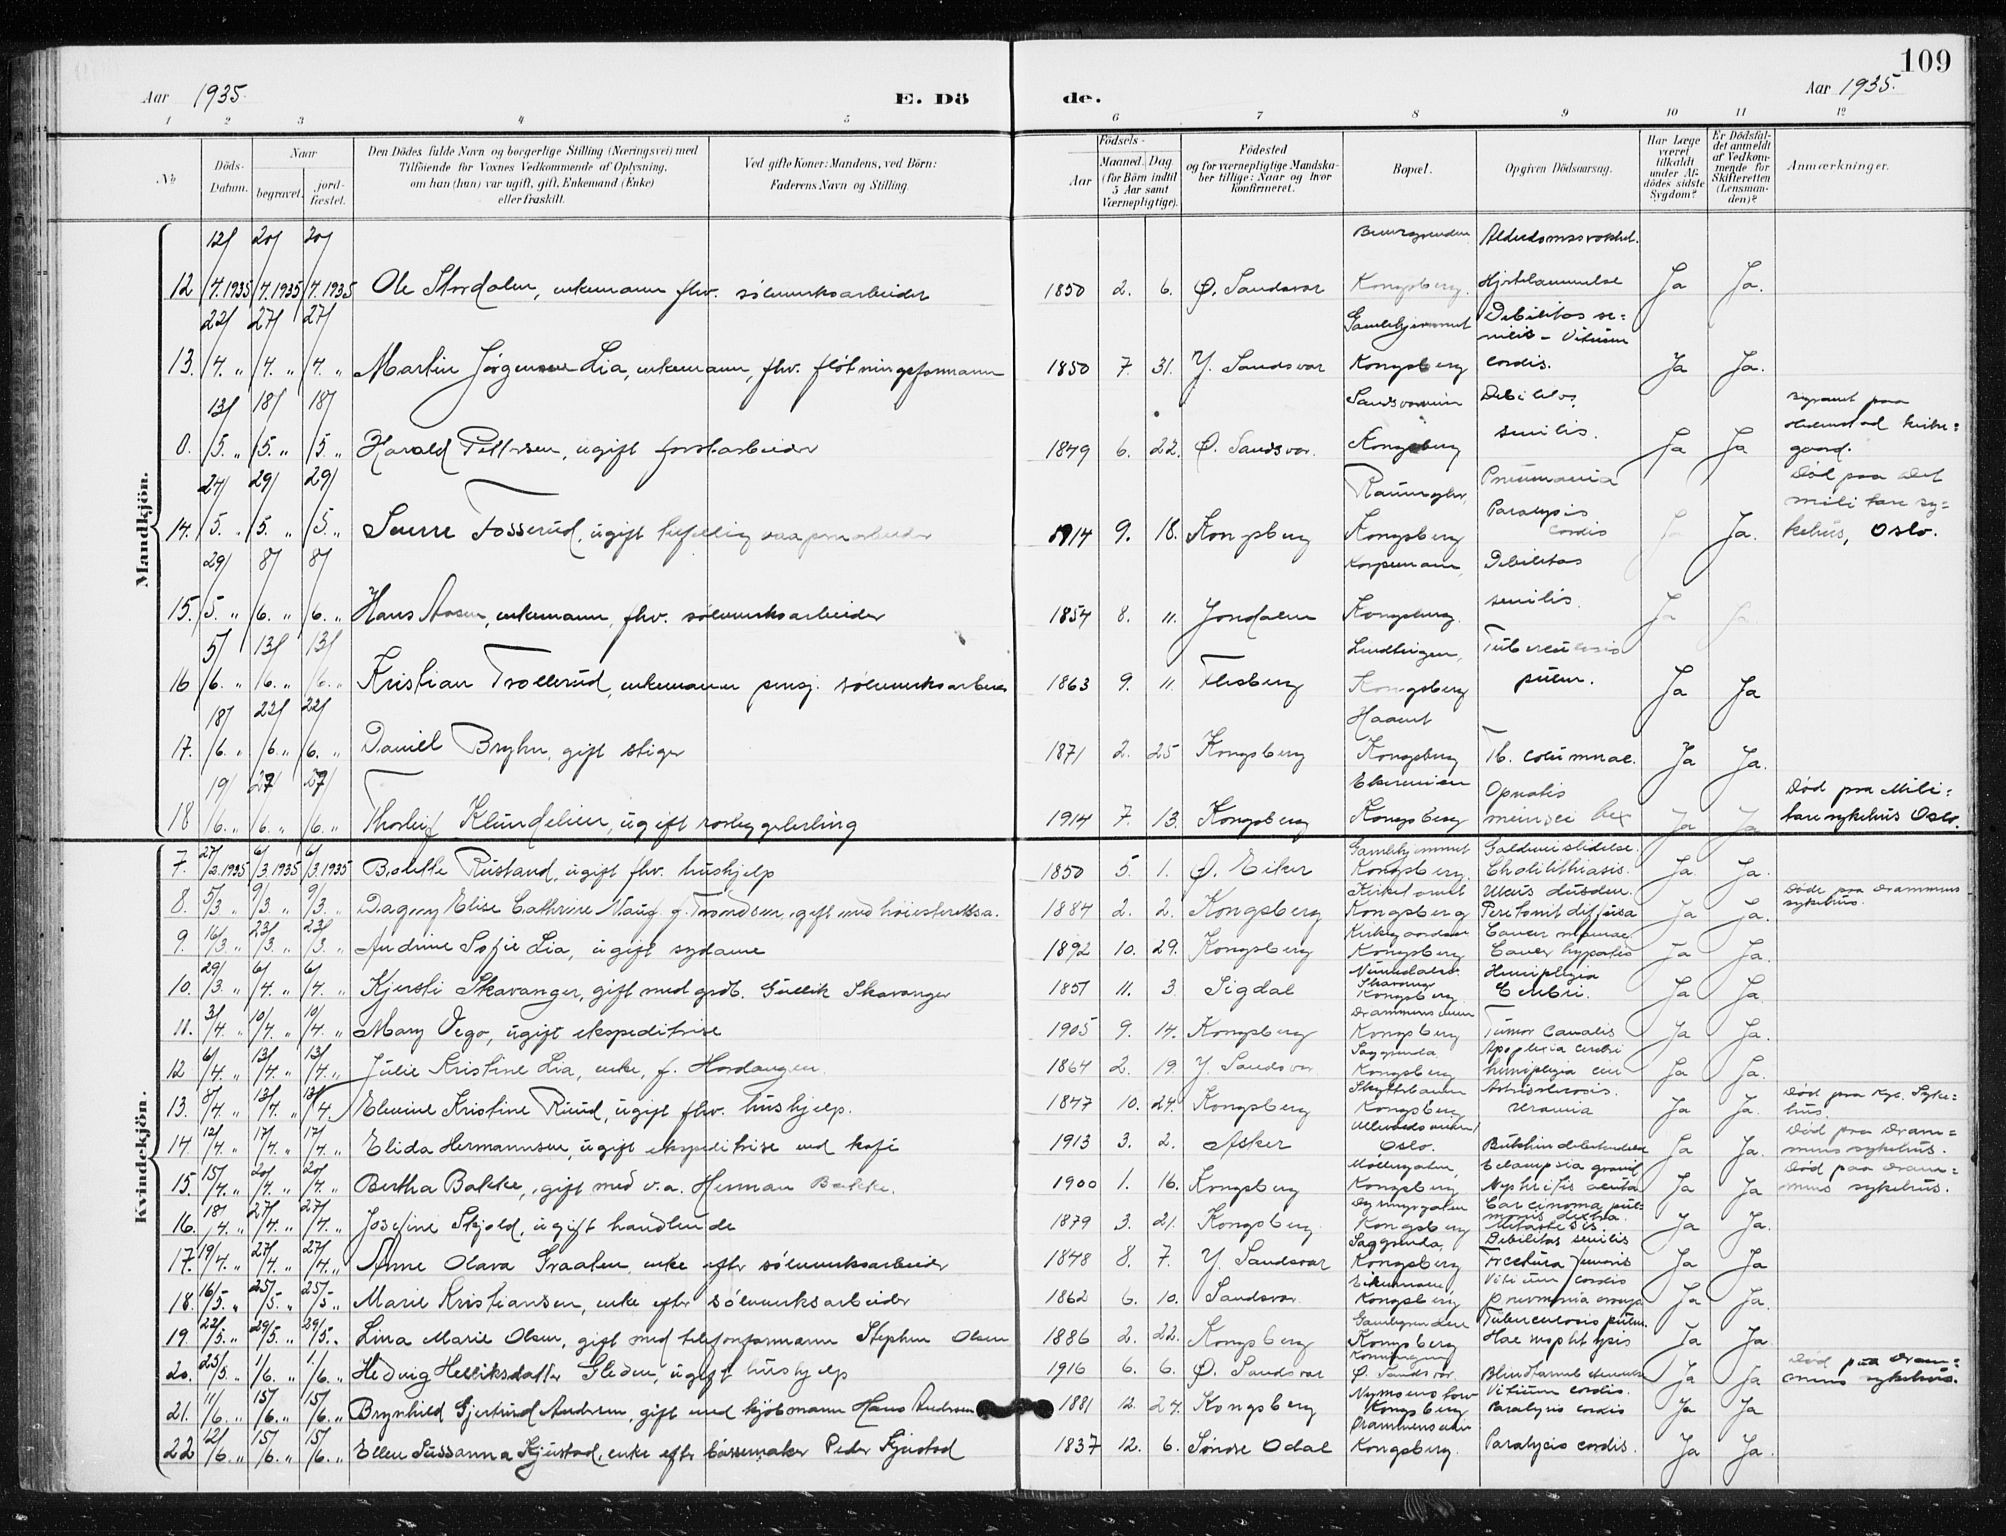 109
Aar 1935.
E. Dö
de.
Aar 1935.
1 2 3 4 5 6 7 8 9 10 11 12
No
Döds-
Datum.
Naar
begravet.
jord-
fæstet.
Den Dödes fulde Navn og borgerlige Stilling (Næringsvei) med
Tilföiende for Voxnes Vedkommende af Oplysning,
om han (hun) var ugift, gift, Enkemand (Enke)
eller fraskilt.
Ved gifte Koner: Mandens, ved Börn:
Faderens Navn og Stilling.
Födsels-
Aar
Maaned. Dag.
(for Börn indtil
5 Aar samt
Værnepligtige).
Födested
og for værnepligtige Mandska-
ber tillige: Naar og hvor
Konfirmeret.
Bopæl.
Opgiven Dödsaarsag.
Har Læge
været
tilkaldt
under Af-
dödes sidste
Sygdom?
Er Dödsfal-
det anmeldt
af Vedkom-
mende for
Skifteretten
(Lensman-
den)?
Anmærkninger.
Mandkjön.
12 12/4. 1935 20/4. 1935 20/4. 1935 Ole Stordalen, enkemann fhv. sølvverksarbeider 1850 2. 6. Ø. Sandsvær Kongsberg. Alderdomssvakhet. Hjertelammelse Ja Ja.
13. 22/4. " 27/4. " 27/4. " Martin Jørgensen Lia, enkemann, fhv. fløtningsformann 1850 7. 31. Y. Sandsvær Gamlehjemmet Kongsberg Debilitas se=
nilis - Vitium
cordis. Ja Ja.
0. 13/5. " 18/5. " 18/5. " Harald Pettersen, ugift forstarbeider 1849 6. 22. Ø. Sandsvær. Kongsberg Debilitas
senilis. Ja Ja kirke=
gaard.
14. 24/5. " 29/5. " 29/5. " Sverre Fosserud, ugift vaapenarbeider 1914 9. 18. Kongsberg Kongsberg Pneumonia
Paralysis
cordis Ja Ja. Død paa Det
militære sy=
kehus, Oslo.
15. 29/5. " 8/6. " 8/6. " Hans Aasen, enkemann, fhv. sølvverksarbeider 1854 8. 11. Jondalen Kongsberg. Debilitas
senilis. Ja Ja.
16 5/6. " 13/6. " 13/6. " Kristian Trollerud, enkemann pensj. sølvverksarbeider 1863 9. 11. Flesberg Kongsberg Tuberculosis
pulm. Ja Ja
17. 18/6. " 22/6. " 22/6. " Daniel Bryhn, gift stiger 1871 2. 25 Kongsberg Kongsberg Tb. columnae. Ja Ja.
18 19/6. " 27/6. " 27/6. " Thorleif Klundelien, ugift 1914 7. 13. Kongsberg Kongsberg Ja Ja Død paa Mili=
tære sykehus Oslo.
Kvindekjön.
7. 27/2. 1935 6/3. 1935 6/3. 1935 Bolette Rustand, ugift fhv. hushjelp 1850 5. 1. Ø. Eiker Gamlehjemmet Kongsberg. Galdeveislidelse.
Cholelithiasis. Ja Ja.
8. 5/3 " 9/3 " 9/3. " Dagny Elise Cathrine f. Trondsen, gift med høiesteretsa. 1884 2. 2. Kongsberg Kirketorvet Kongsberg Ulcus duoden.
Peritonit diffusa Ja Ja. Døde paa Drammens
sykehus.
9. 16/3. " 23/3 " 23/3. " Andrine Sofie Lia, ugift sydame 1892 10. 29. Kongsberg Kirkegaardsen Kongsberg Cancer mamae
Cancer hypatis Ja Ja.
10. 29/3. " 6/4. " 6/4. " Kjersti Skavanger, gift med grdb. Gullik Skavanger 1851 11. 3. Sigdal Skavanger Kongsberg Hemiplegia
Cerebri. Ja Ja.
11. 3/4. " 10/4. " 10/4. " Mary Vego, ugift ekspeditrise 1905 9. 14. Kongsberg Drammensveien Kongsberg Tumor Ja Ja.
12 6/4. " 13/4. " 13/4. " Julie Kristine Lia, enke, f. Hordangen. 1864 2. 19. Y. Sandsvær Saggrenda Kongsberg Apoplexia cerebri
hemiplegia Ja Ja.
13. 8/4. " 13/4. " 13/4. Elevine Kristine Ruud, ugift fhv. hushjelp. 1847 10. 24. Kongsberg Kongsberg Uræmia Ja Ja. Død paa Kgb. Syke=
hus.
14. 12/4. " 17/4. " 17/4. " Elida Hermannsen, ugift ekspeditrise ved kafé 1913 3. 2. Asker Oslo. Ja Ja. Død paa Dram=
mens sykehus.
15. 15/4. " 20/4. " 20/4. " Bertha Bakke, gift med v.a. Herman Bakke. 1900 1. 16. Kongsberg Møllergaten, Kongsberg Eclampsia gravid
Nephritis acuta Ja Ja Død paa Dram=
mens sykehus.
16. 18/4. " 27/4. " 27/4. " Josefine Skjold, ugift handlende 1879 3. 21. Kongsberg. Kongsberg Carcinoma pul=
monis dextra.
Metastesis. Ja Ja.
17. 19/4. " 27/4. " 27/4. " Anne Olava Graaten, enke efter sølvverksarbeider 1848 8. 7. Y. Sandsvær Saggrenda, Kongsberg Debilitas senilis
Fractura femoris Ja Ja
18. 16/5. " 25/5. " 25/5. " Marie Kristiansen, enke efter sølvverksarbeider 1862 6. 10. Sandsvær Kongsberg Vitium cordis
pnevmonia Ja Ja.
19. 22/5. " 29/5. " 29/5. " Lina Marie Olsen, gift med telefonformann Stephen Olsen 1886 2. 22. Kongsberg Kongsberg Tuberculosis pulm.
Haemoptysis Ja Ja.
20. 25/5. " 1/6. " 1/6. " Hedvig Helliksdatter Gleden, ugift hushjelp 1916 6. 6. Ø. Sandsvær Ø. Sandsvær Ja Ja Død paa Dram=
mens sykehus.
21. 11/6. " 15/6. " 15/6. " Brynhild Gjertrud Andersen, gift med kjøbmann Hans Andersen 1881 12. 24. Kongsberg Kongsberg Vitium cordis.
Paralysis cordis Ja Ja
22 12/6. " 15/6. " 15/6. " Ellen Sussanna Kjustad, enke efter børsemaker Peder Kjustad 1837 12. 6. Søndre Odal Drammensveien Kongsberg. Paralysis cordis. Ja Ja.